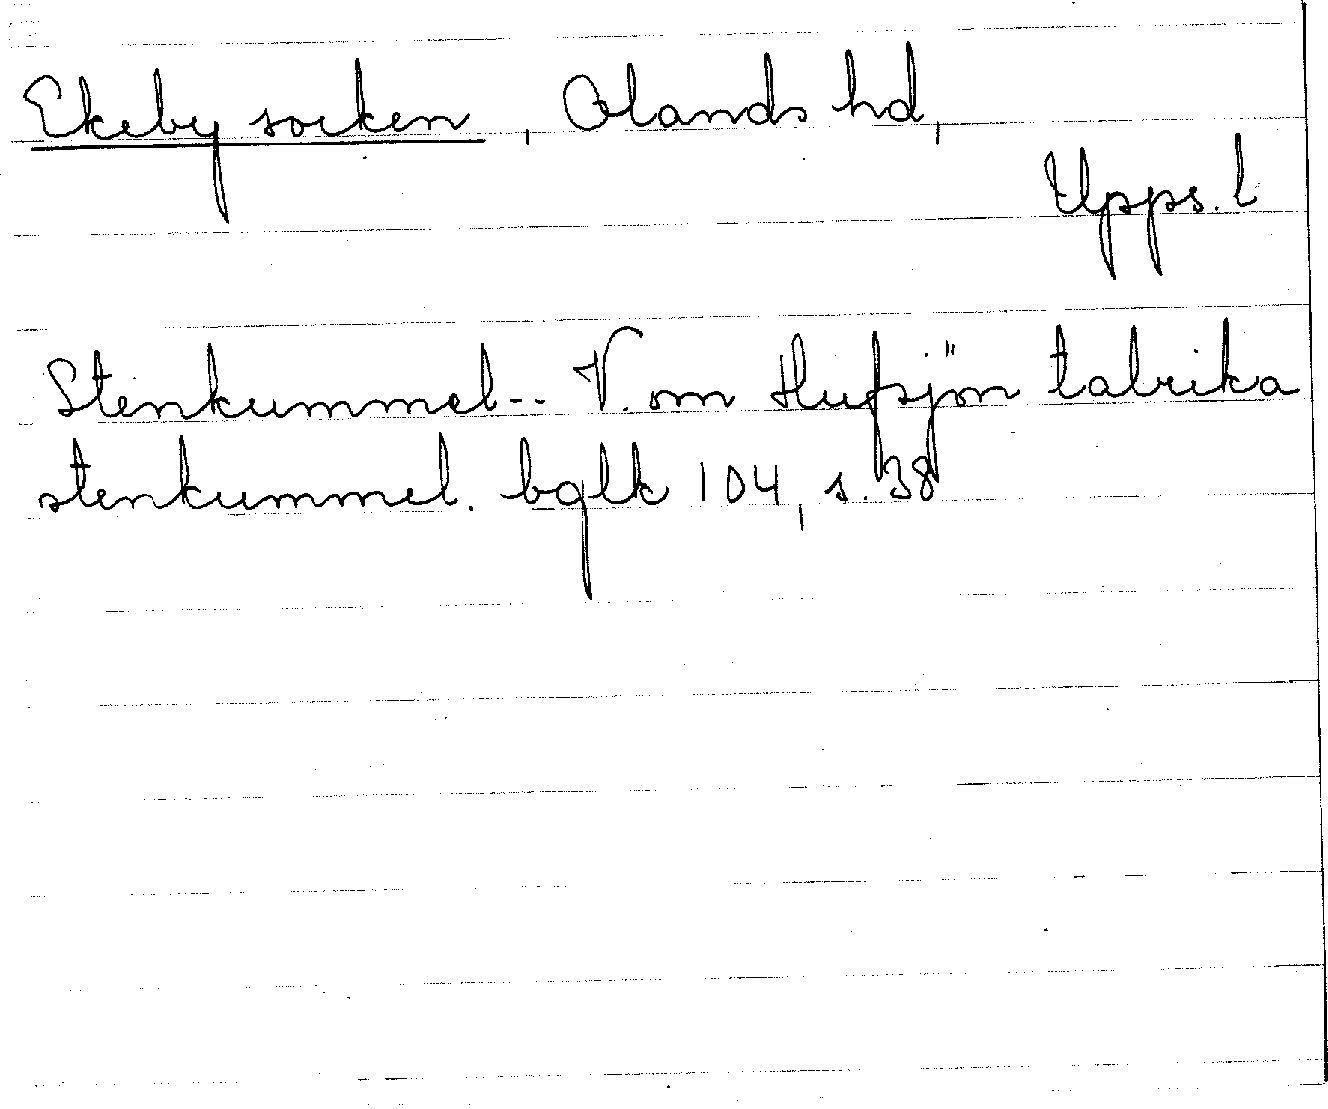 Ekeby socken, Olands hd,
Upps. l
Stenkummel-- V. om Hufsjön talrika
stenkummel. bglk 104, s. 38